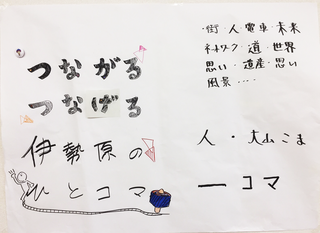 つながる
つなげる
伊勢原の
ひとコマ
・街・人・電車・未来
ネットワーク・道・世界
思い・道産・思い
風景・・・・
人・大山こま
一コマ